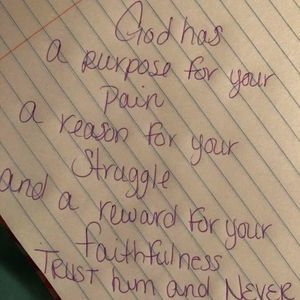 God has
a purpose for your
Pain
a reason for your
Struggle
and a reward for your
faithfulness
TRUST him and NEVER